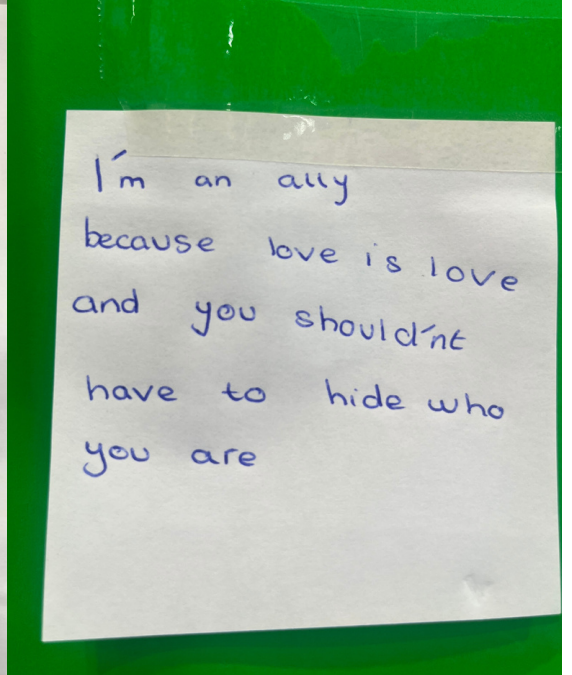 I'm an ally
because love is love
and you should'nt
have to hide who
you are